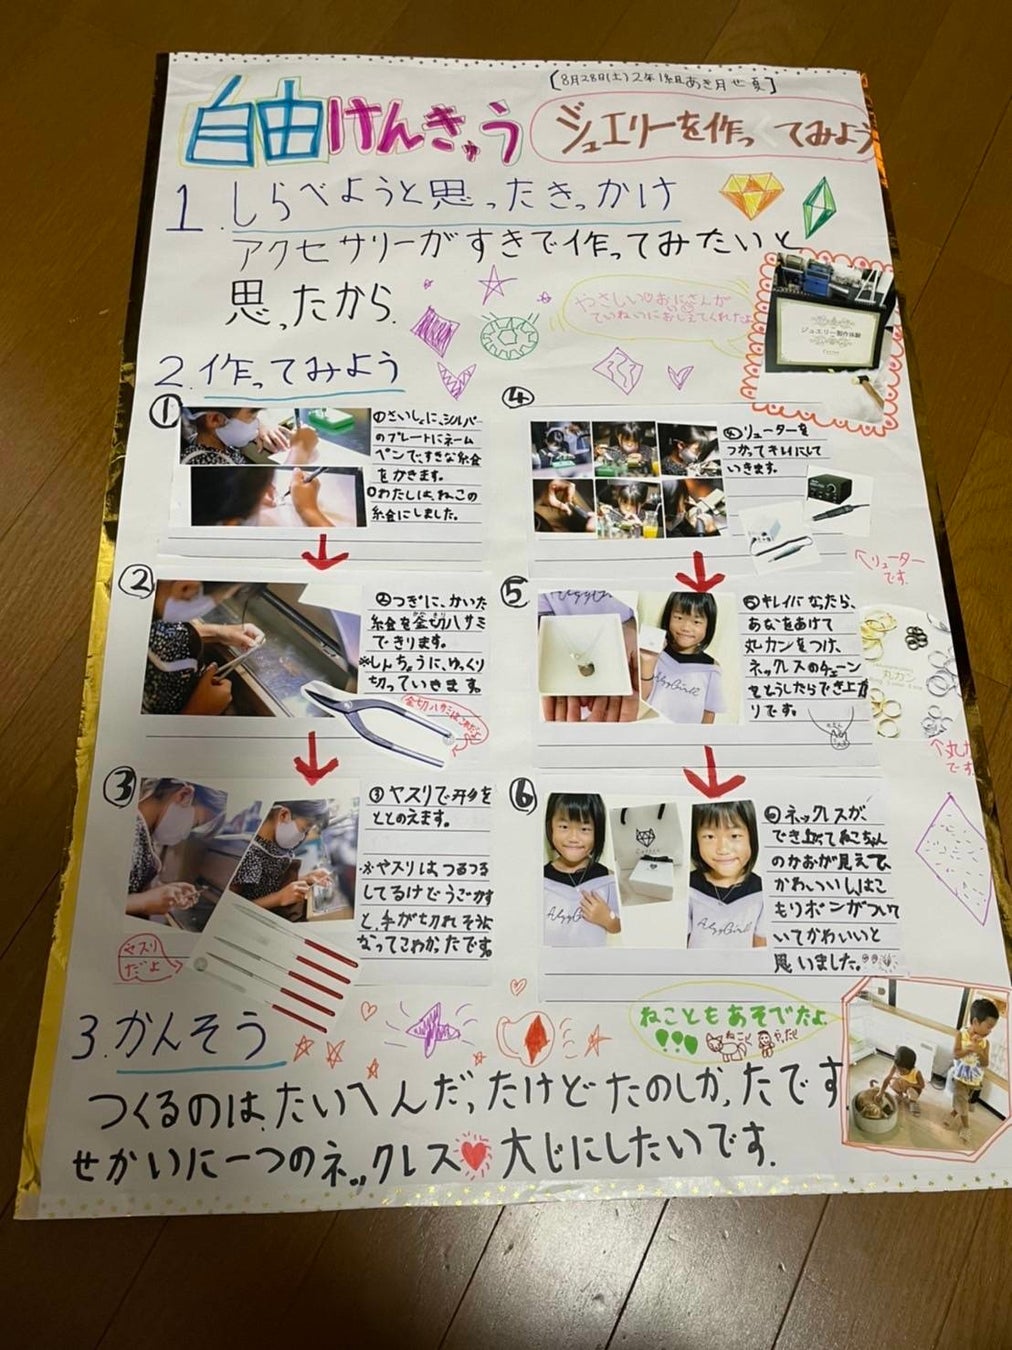 [8月28日(土)2年1組あき月
自由けんきゅう
ジュエリーを作ってみよう
1.しらべようと思ったきっかけ
アクセサリーがすきで作ってみたいと
思ったから.
やさしいおにさんが
ていねいにおしえてくれたよ
ジュエリー製作体験
2.作ってみよう
①
①さいしょに、シルバー
のプレートにネーム
ペンで、すきな絵
をかきます。
○わたしは、ねこの
絵にしました。
②
②つぎに、かいた
絵を金切ハサミ
できります。
※しんちょうに、ゆっくり
切っていきます。
金切ハサミは
③
③ヤスリで形を
ととのえます。
※ヤスリは、つるつる
してるけどうごかす
と、手が切れそうに
なってこわかったです。
ヤスリ
だよ
④
④リューターを
つかってキレイにして
いきます。
リューター
です。
⑤
⑤キレイになったら、
あなをあけて
丸カンをつけ、
ネックレスのチェーン
をとうしたらでき上が
りです。
丸カン
です
⑥
⑥ネックレスが、
でき上がってねこちゃん
のかおが見えて、
かわいいしはこ
もリボンがついて
いてかわいいと
思いました。
3.かんそう
ねこともあそでたよ
!!!
つくるのは、たいへんだったけどたのしかったです
せかいに一つのネックレス♥大じにしたいです.